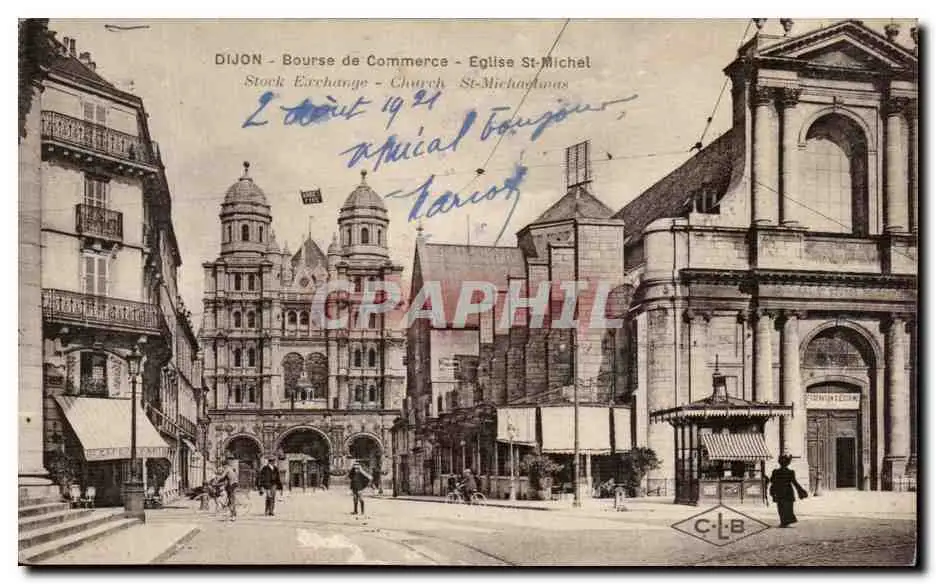 DIJON - Bourse de Commerce - Eglise St-Michel
Stock Exchange - Church St-Michaelmas
2 Août 1921
spécial Toujours
Marion
CPARAMA
C·L·B